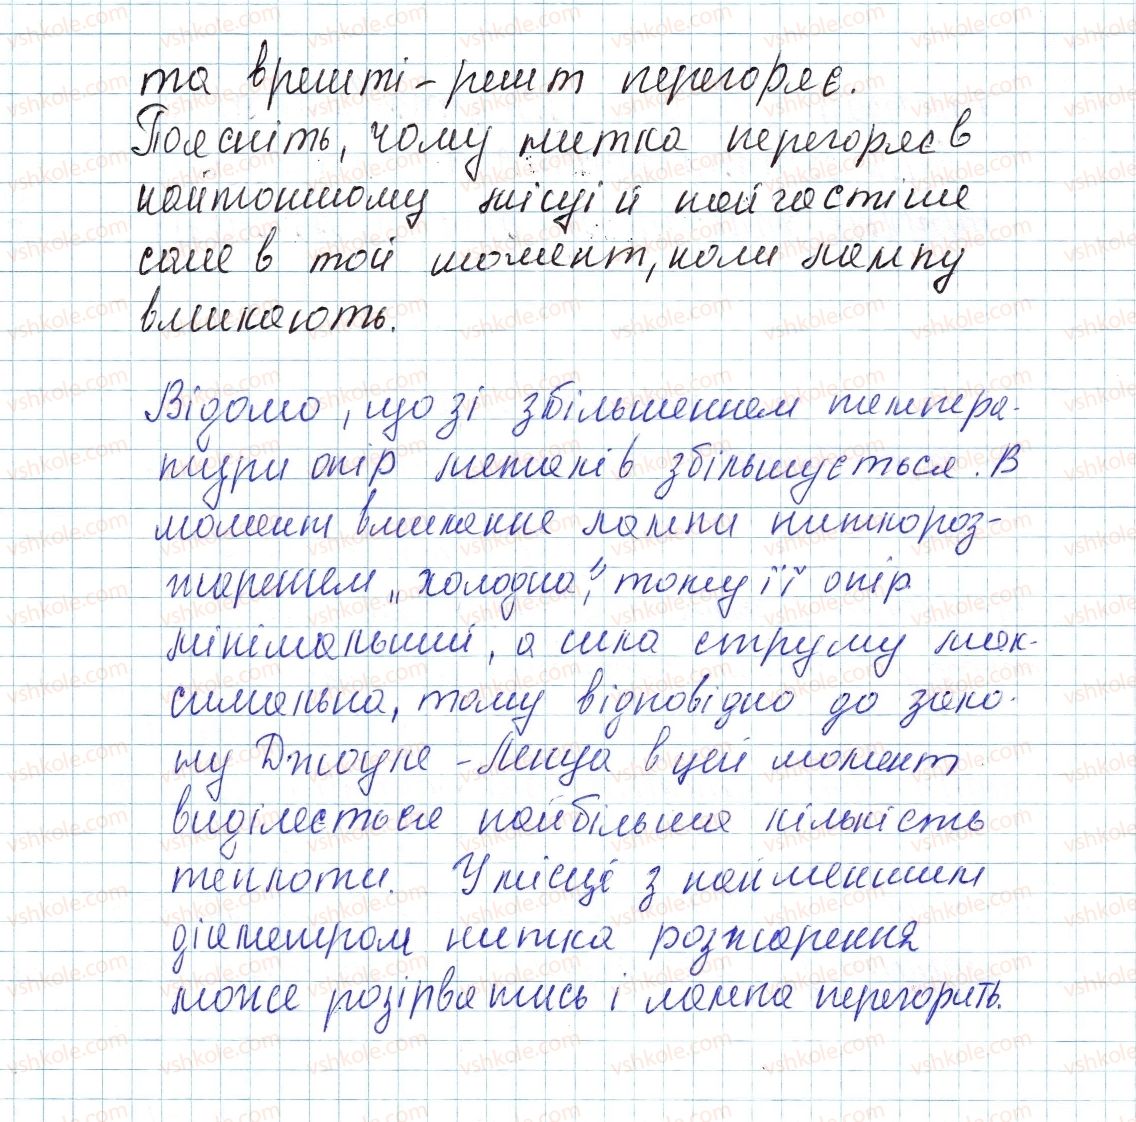 та врешті-решт перегоряє.
Поясніть, чому нитка перегоряє в
найтоншому місці й найчастіше
саме в той момент, коли лампу
вмикають.
Відомо, що зі збільшенням темпера-
тури опір металів збільшується. В
момент вмикання лампи нитка роз-
жарення „холодна", тому її опір
мінімальний, а сила струму мак-
симальна, тому відповідно до зако-
ну Джоуля-Ленца в цей момент
виділяється найбільша кількість
теплоти. У місці з найменшим
діаметром нитка розжарення
може розірватись і лампа перегорить.